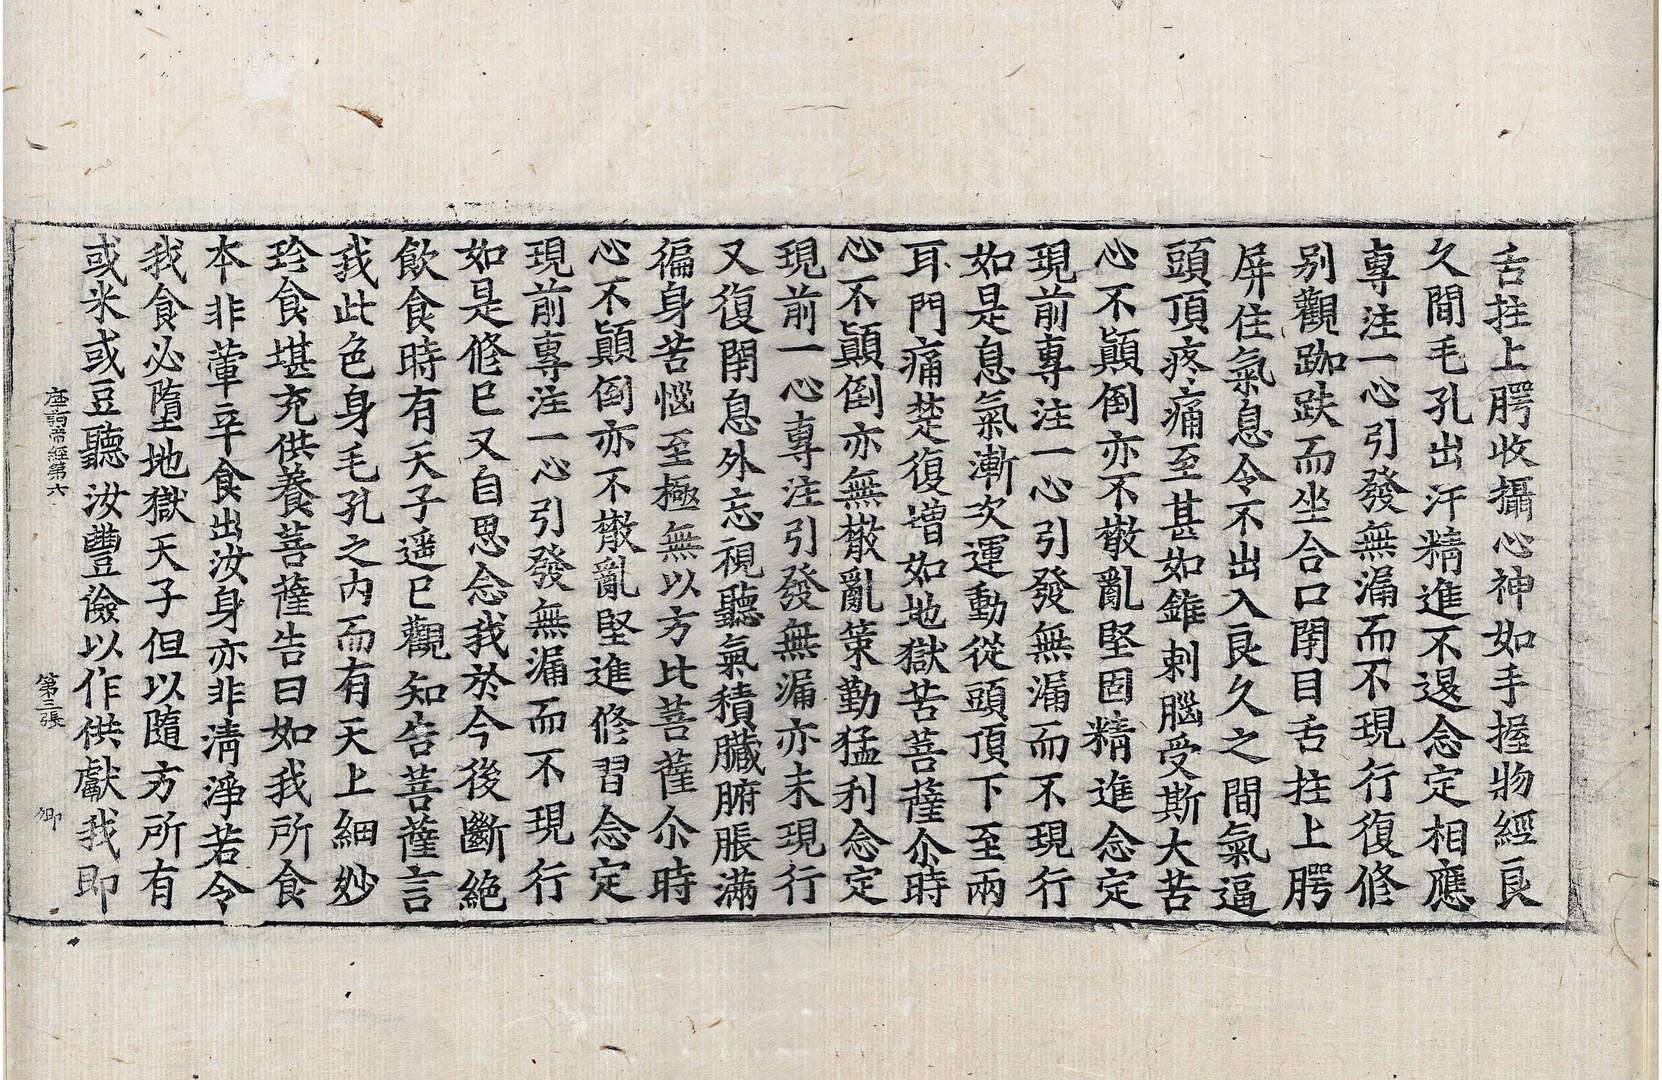 舌拄上腭收攝心神如手握物經良
久間毛孔出汗精進不退念定相應
專注一心引發無漏而不現行復修
别觀跏趺而坐合口閉目舌拄上腭
屏住氣息令不出入良久之間氣逼
頭頂疼痛至甚如錐刺腦受斯大苦
心不顚倒亦不散亂堅固精進念定
現前專注一心引發無漏而不現行
如是息氣漸次運動從頭頂下至兩
耳門痛楚復增如地獄苦菩薩尒時
心不顚倒亦無散亂策勤猛利念定
現前一心專注引發無漏亦未現行
又復閉息外忘視聽氣積臟腑脹滿
徧身苦惱至極無以方比菩薩尒時
心不顚倒亦不散亂堅進修習念定
現前專注一心引發無漏而不現行
如是修已又自思念我於今後斷絶
飲食時有天子遥已觀知告菩薩言
我此色身毛孔之内而有天上細妙
珎食堪充供養菩薩告曰如我所食
本非葷辛食出汝身亦非清淨若令
我食必墮地獄天子但以隨方所有
或米或豆聽汝豐儉以作供獻我即
第六
第三張
卿